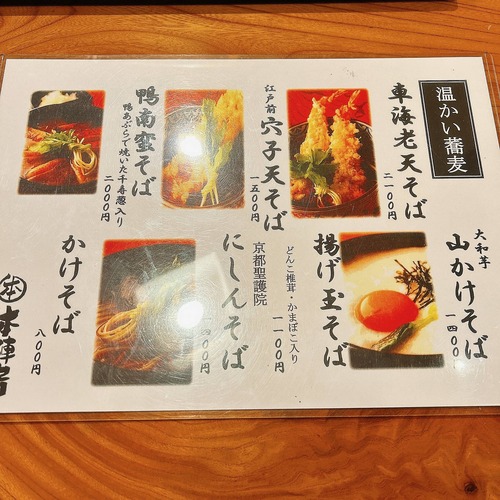 温かい蕎麦
車海老天そば
二一〇〇円
江戸前
穴子天そば
一五〇〇円
鴨南蛮そば
鴨あぶらで焼いた千寿葱入り
二〇〇〇円
大和芋
山かけそば
一四〇〇
揚げ玉そば
どんこ椎茸・かまぼこ入り
一一〇〇円
京都聖護院
にしんそば
一四〇〇円
かけそば
八〇〇円